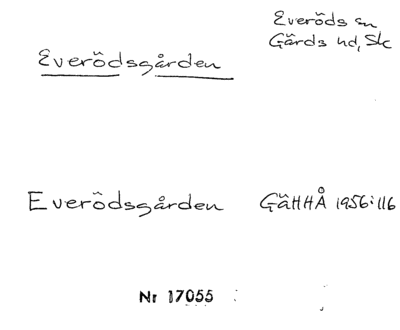 Everödsgården
Everöds sn
Gärds hd, Sk
Everödsgården GäHHÅ 1956:116
Nr 17055